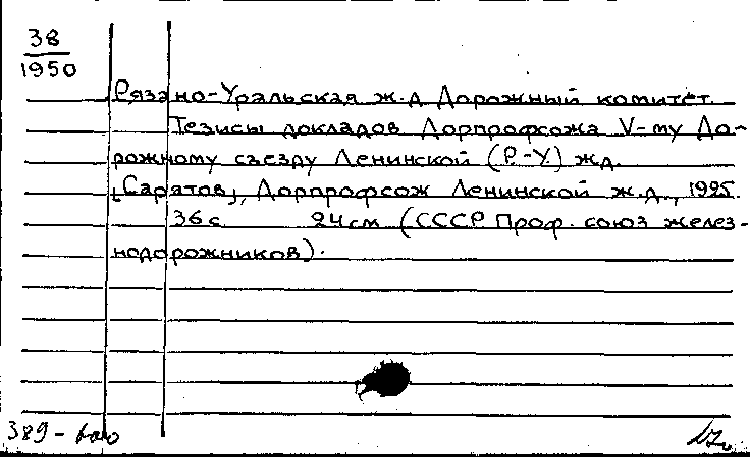 38
1950
Рязано-Уральская ж.д. Дорожный комитет.
Тезисы докладов Дорпрофсожа V-му До-
рожному съезду Ленинской (Р.-У.) ж.д.
[Саратов], Дорпрофсож Ленинской ж.д., 1925.
36 с. 24 см (СССР. Проф. союз желез-
нодорожников).
389-